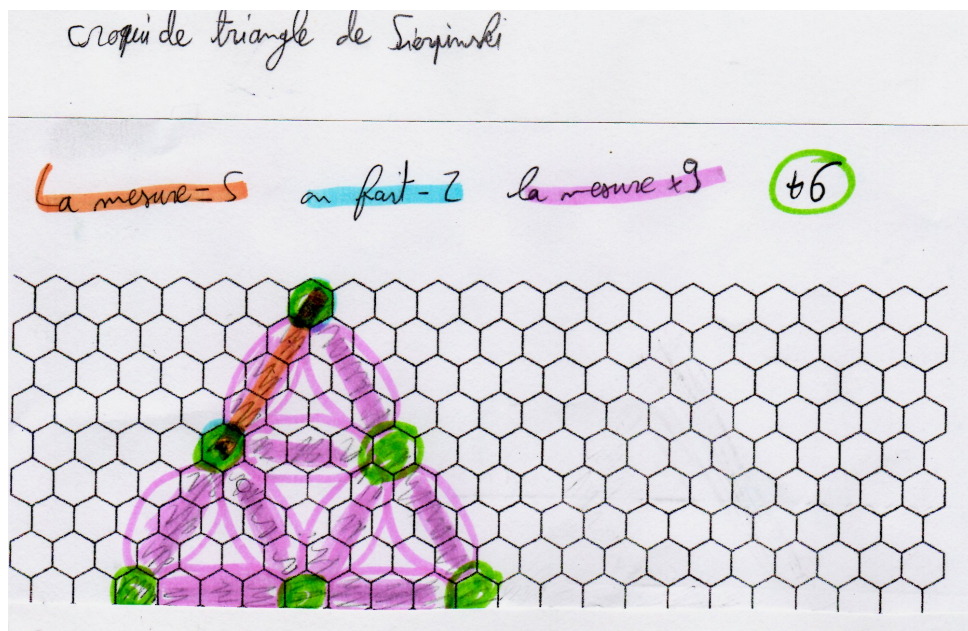 croqui de triangle de Sierpinski
La mesure = 5 on fait - 2 la mesure x9 +6